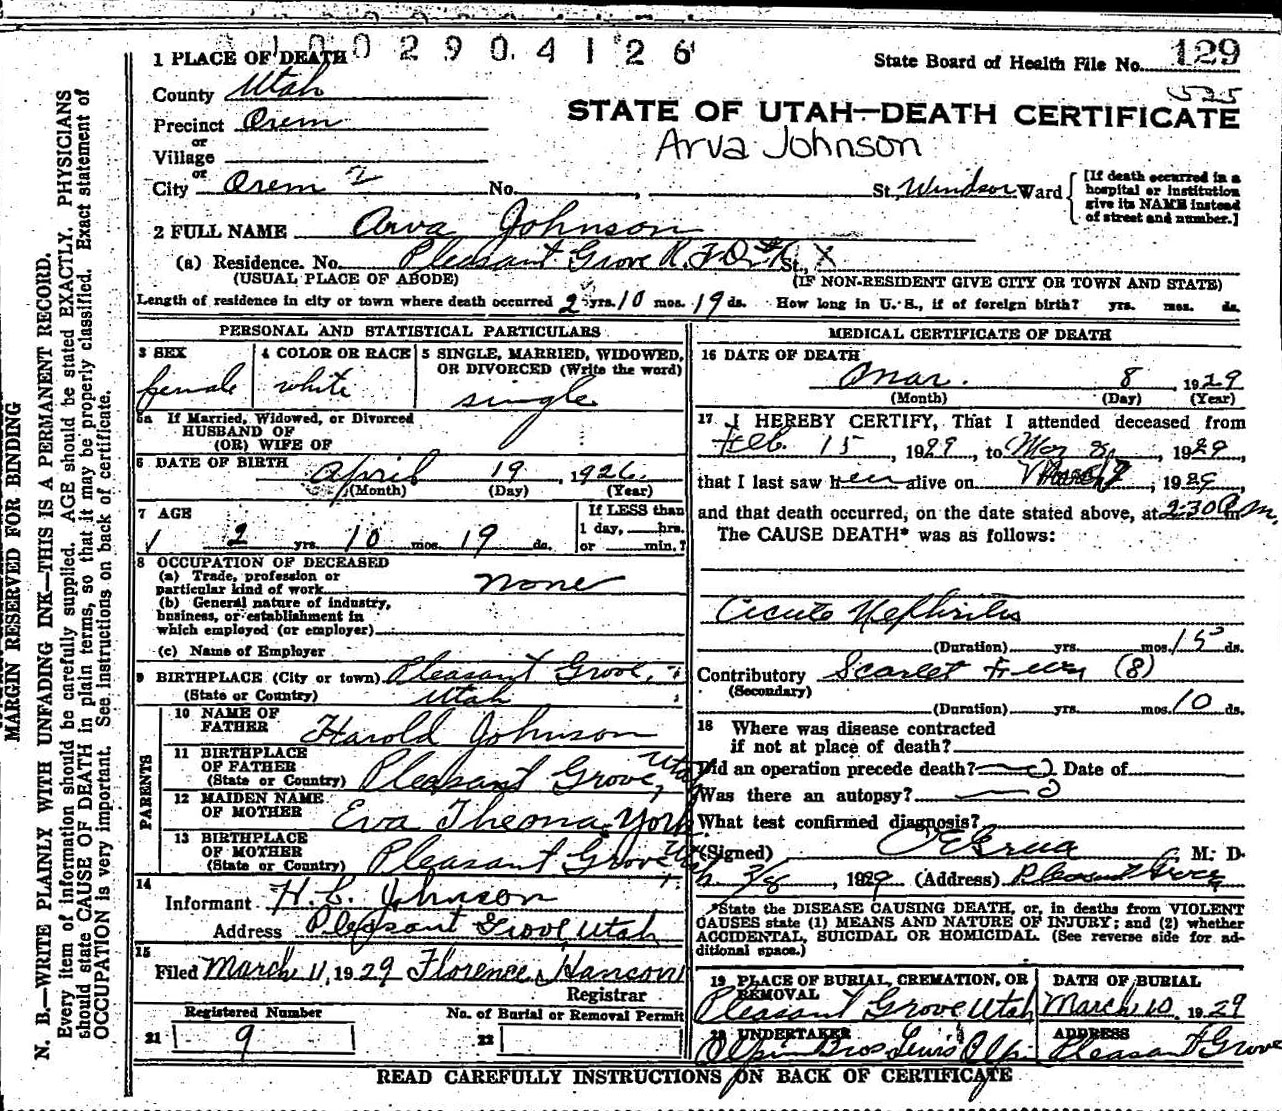 1 PLACE OF DEATH
0 0 2 9 0 4 1 2 6
State Board of Health File No. 129
County Utah
525
STATE OF UTAH—DEATH CERTIFICATE
Precinct Orem
or
Village
Arva Johnson
or
City Orem 2 No. , St. Windsor Ward
[If death occurred in a hospital or institution give its NAME instead of street and number.]
2 FULL NAME Arva Johnson
(a) Residence. No. Pleasant Grove R.F.D. St., X
(USUAL PLACE OF ABODE) (IF NON-RESIDENT GIVE CITY OR TOWN AND STATE)
Length of residence in city or town where death occurred 2 yrs. 10 mos. 19 ds. How long in U. S., if of foreign birth? yrs. mos. ds.
PERSONAL AND STATISTICAL PARTICULARS
3 SEX
female
4 COLOR OR RACE
white
5 SINGLE, MARRIED, WIDOWED, OR DIVORCED (Write the word)
single
5a If Married, Widowed, or Divorced
HUSBAND OF
(OR) WIFE OF
6 DATE OF BIRTH April 19, 1926
(Month) (Day) (Year)
7 AGE
2 yrs. 10 mos. 19 ds.
If LESS than
1 day, hrs.
or min.?
8 OCCUPATION OF DECEASED
(a) Trade, profession or
particular kind of work none
(b) General nature of industry,
business, or establishment in
which employed (or employer)
(c) Name of Employer
9 BIRTHPLACE (City or town) Pleasant Grove,
(State or Country) Utah
PARENTS
10 NAME OF
FATHER Harold Johnson
11 BIRTHPLACE
OF FATHER
(State or Country) Pleasant Grove, Utah
12 MAIDEN NAME
OF MOTHER Eva Theona York
13 BIRTHPLACE
OF MOTHER
(State or Country) Pleasant Grove Utah
14
Informant H. C. Johnson
Address Pleasant Grove Utah
15
Filed March 11, 1929 Florence Hanson
Registrar
Registered Number
21 9
No. of Burial or Removal Permit
22
MEDICAL CERTIFICATE OF DEATH
16 DATE OF DEATH
Mar. 8, 1929
(Month) (Day) (Year)
17 I HEREBY CERTIFY, That I attended deceased from
Feb. 15, 1929, to Mar 8, 1929,
that I last saw her alive on March 7, 1929,
and that death occurred, on the date stated above, at 2:30 A m.
The CAUSE DEATH* was as follows:
Acute Nephritis
(Duration) yrs. mos. 15 ds.
Contributory Scarlet Fever (8)
(Secondary)
(Duration) yrs. mos. 10 ds.
18 Where was disease contracted
if not at place of death?
Did an operation precede death? Date of
Was there an autopsy?
What test confirmed diagnosis?
(Signed) M. D.
3/8, 1929 (Address) Pleasant Grove
*State the DISEASE CAUSING DEATH, or, in deaths from VIOLENT
CAUSES state (1) MEANS AND NATURE OF INJURY; and (2) whether
ACCIDENTAL, SUICIDAL OR HOMICIDAL. (See reverse side for ad-
ditional space.)
19 PLACE OF BURIAL, CREMATION, OR
REMOVAL
Pleasant Grove Utah
DATE OF BURIAL
March 10, 1929
20 UNDERTAKER
Olpin Bros Lewis Olpin
ADDRESS
Pleasant Grove
READ CAREFULLY INSTRUCTIONS ON BACK OF CERTIFICATE
MARGIN RESERVED FOR BINDING
N. B.—WRITE PLAINLY WITH UNFADING INK—THIS IS A PERMANENT RECORD.
Every item of information should be carefully supplied. AGE should be stated EXACTLY. PHYSICIANS
should state CAUSE OF DEATH in plain terms, so that it may be properly classified. Exact statement of
OCCUPATION is very important. See instructions on back of certificate.